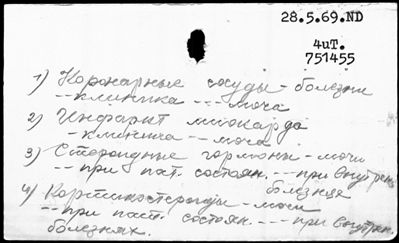 28.5.69.ND
4uT.
751455
1) Коронарные сосуды - болезни
-- клиника --- моча
2) Инфаркт миокарда
- клиника -- моча
3) Стероидные гормоны - мочи
-- при пат. состоян. --- при внутрен.
болезнях
4) Кортикостероиды - мочи
-- при пат. состоян. --- при внутрен.
болезнях.